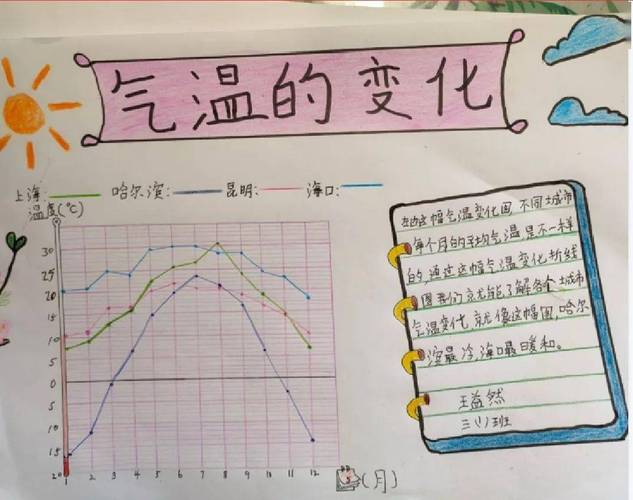 气温的变化
上海: 哈尔滨: 昆明: 海口:
温度(℃)
30
25
20
15
10
5
0
5
10
15
20
1 2 3 4 5 6 7 8 9 10 11 12 (月)
在这幅气温变化图,不同城市
每个月的平均气温是不一样
的,通过这幅气温变化折线
图我们就能了解各个城市
气温变化,就像这幅图,哈尔
滨最冷,海口最暖和。
王益然
三(1)班